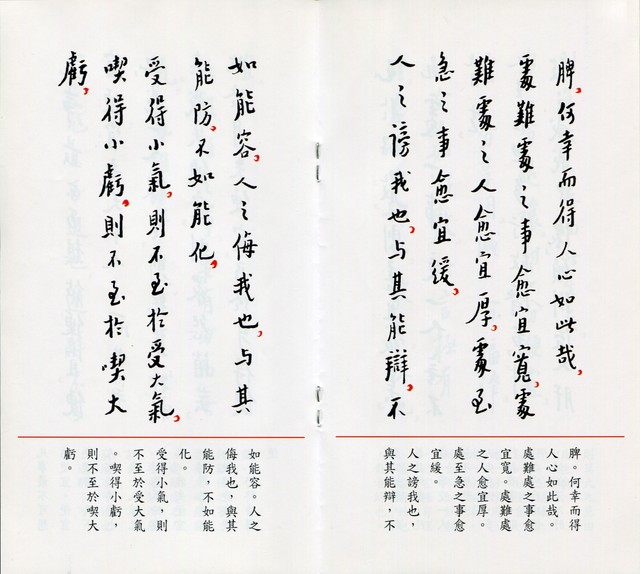 脾，何幸而得人心如此哉，
處難處之事愈宜寬，處
難處之人愈宜厚，處至
急之事愈宜緩，
人之謗我也，与其能辯，不
脾。何幸而得
人心如此哉。
處難處之事愈
宜寬。處難處
之人愈宜厚。
處至急之事愈
宜緩。
人之謗我也，
與其能辯，不
如能容，人之侮我也，与其
能防，不如能化，
受得小氣，則不至於受大氣，
喫得小虧，則不至於喫大
虧，
如能容。人之
侮我也，與其
能防，不如能
化。
受得小氣，則
不至於受大氣
。喫得小虧，
則不至於喫大
虧。